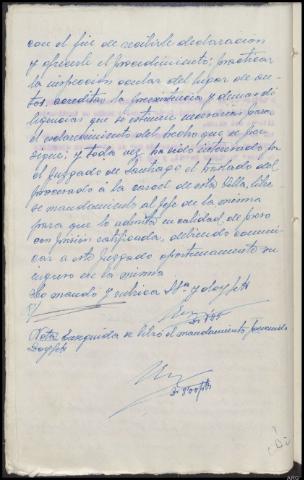 con el fin de recibirle declaracion
y ofrecerle el procedimiento; practicar
la inspeccion ocular del lugar de au-
tos, acreditar la preexistencia y demas di-
ligencias que se estimen necesarias para
el esclarecimiento del hecho que se per-
sigue; y toda vez ha sido interesado por
el Juzgado de Santiago el traslado del
procesado á la carcel de esta Villa, libre-
se mandamiento al Jefe de la misma
para que lo admita en calidad de preso
con prision ratificada, debiendo comuni-
car a este Juzgado oportunamente su
ingreso en la misma
Lo mandó y rubrica Sª y doy fe
Nota Seguida se libró el mandamiento prevenido
Doy fe